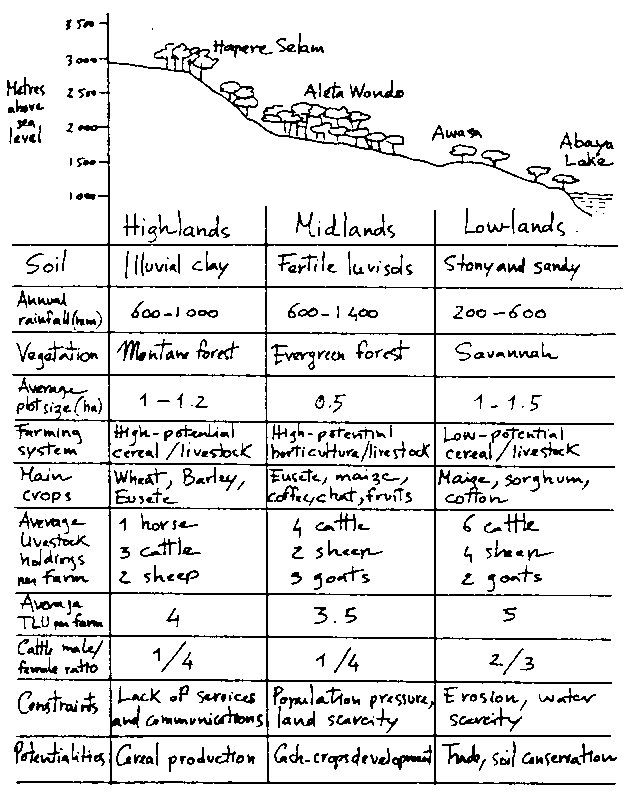 3500
3000
2500
2000
1500
1000
Metres
above
sea
level
Hagere Selam
Aleta Wondo
Awasa
Abaya
Lake
Highlands Midlands Lowlands
Soil Illuvial clay Fertile luvisols Stony and sandy
Annual
rainfall (mm) 600-1000 600-1400 200-600
Vegetation Montane forest Evergreen forest Savannah
Average
plot size (ha) 1-1.2 0.5 1-1.5
Farming High-potential High-potential Low-potential
system cereal/livestock horticulture/livestock cereal/livestock
Main Wheat, Barley, Ensete, maize, Maize, sorghum,
crops Ensete coffee, chat, fruits cotton
Average 1 horse 4 cattle 6 cattle
Livestock
holdings 3 cattle 2 sheep 4 sheep
per farm 2 sheep 3 goats 2 goats
Average
TLU per farm 4 3.5 5
Cattle male/
female ratio 1/4 1/4 2/3
Constraints Lack of services Population pressure, Erosion, water
and communications land scarcity scarcity
Potentialities Cereal production Cash-crops development Trade, soil conservation